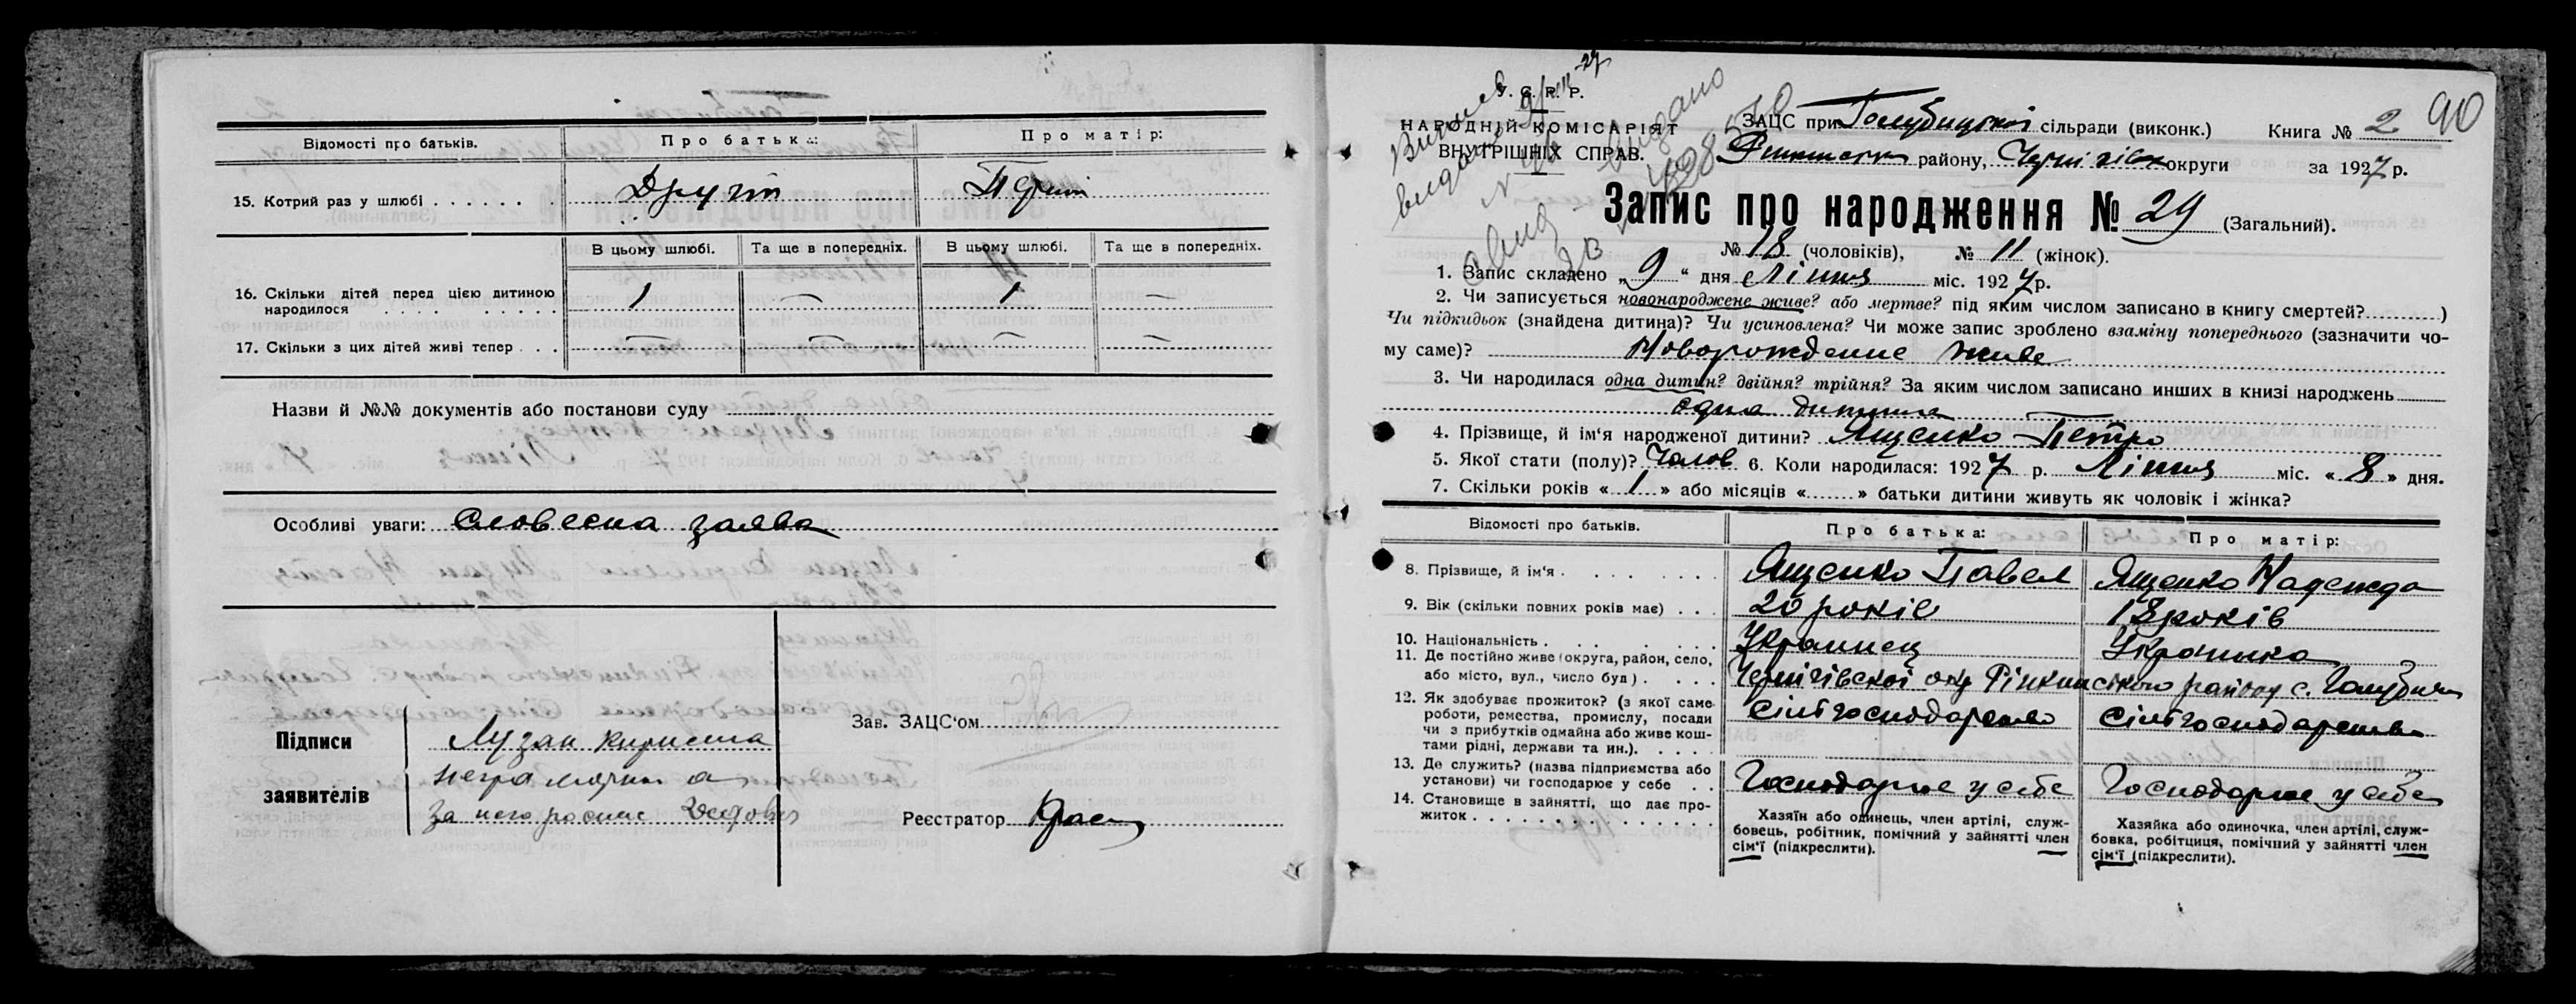 Відомості про батьків. Про батька: Про матір:
15. Котрий раз у шлюбі Другий Перший
В цьому шлюбі. Та ще в попередніх. В цьому шлюбі. Та ще в попередніх.
16. Скільки дітей перед цією дитиною народилося 1 — 1 —
17. Скільки з цих дітей живі тепер — — — —
Назви й №№ документів або постанови суду
Особливі уваги: Словесна заява
Підписи заявителів
Лузан
неграмотни а
за него роспис
Зав. ЗАЦС'ом
Реєстратор
90
У. С. Р. Р.
НАРОДНІЙ КОМІСАРІЯТ
ВНУТРІШНІХ СПРАВ.
ЗАЦС при Голубицкій сільради (виконк.) Книга № 2
району, Чернігівск округи за 1927 р.
Запис про народження № 29 (Загальний).
№ 18 (чоловіків), № 11 (жінок).
1. Запис складено „ 9 “ дня Липня міс. 1927 р.
2. Чи записується новонароджене живе? або мертве? під яким числом записано в книгу смертей? )
Чи підкидьок (знайдена дитина)? Чи усиновлена? Чи може запис зроблено взаміну попереднього (зазначити чо-
му саме)? Новорождение живе
3. Чи народилася одна дитин? двійня? трійня? За яким числом записано инших в книзі народжень
одна дитина
4. Прізвище, й ім'я народженої дитини? Ященко Петро
5. Якої стати (полу)? Чолов 6. Коли народилася: 1927 р. Липня міс. « 8 » дня.
7. Скільки років « 1 » або місяців « » батьки дитини живуть як чоловік і жінка?
Відомості про батьків. Про батька: Про матір:
8. Прізвище, й ім'я Ященко Павел Ященко Надежда
9. Вік (скільки повних років має) 20 років 18 років
10. Національність Украинец Украинка
11. Де постійно живе (округа, район, село,
або місто, вул., число буд) Чернігівскої окр Ріпкинського району с. Голубичи
12. Як здобуває прожиток? (з якої саме
роботи, ремества, промислу, посади
чи з прибутків одмайна або живе кош-
тами рідні, держави та ин.). Сілгосподарство Сілгосподарство
13. Де служить? (назва підприємства або
установи) чи господарює у себе Господарює у себе Господарює у себе
14. Становище в зайнятті, що дає про-
житок
Хазяїн або одинець, член артілі, служ-
бовець, робітник, помічний у зайнятті член
сім'ї (підкреслити).
Хазяйка або одиночка, член артілі, служ-
бовка, робітниця, помічний у зайнятті член
сім'ї (підкреслити).